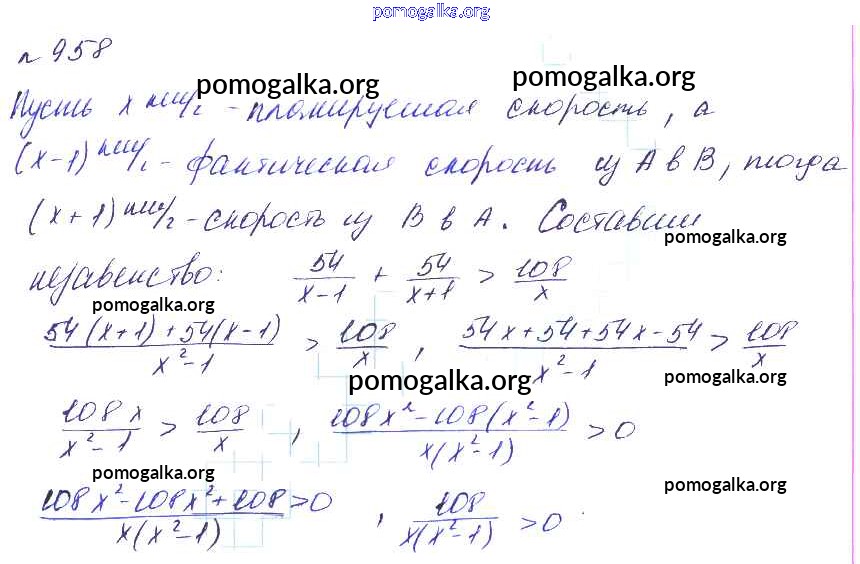 pomogalka.org
№ 958
pomogalka.org pomogalka.org
Пусть x км/ч - планируемая скорость, а
(x-1) км/ч - фактическая скорость из A в B, тогда
(x+1) км/ч - скорость из B в A. Составим
pomogalka.org
неравенство: 54/(x-1) + 54/(x+1) > 108/x
pomogalka.org
(54(x+1)+54(x-1))/(x²-1) > 108/x , (54x+54+54x-54)/(x²-1) > 108/x
pomogalka.org pomogalka.org
108x/(x²-1) > 108/x , (108x²-108(x²-1))/(x(x²-1)) > 0
pomogalka.org pomogalka.org
(108x²-108x²+108)/(x(x²-1)) > 0 , 108/(x(x²-1)) > 0 .